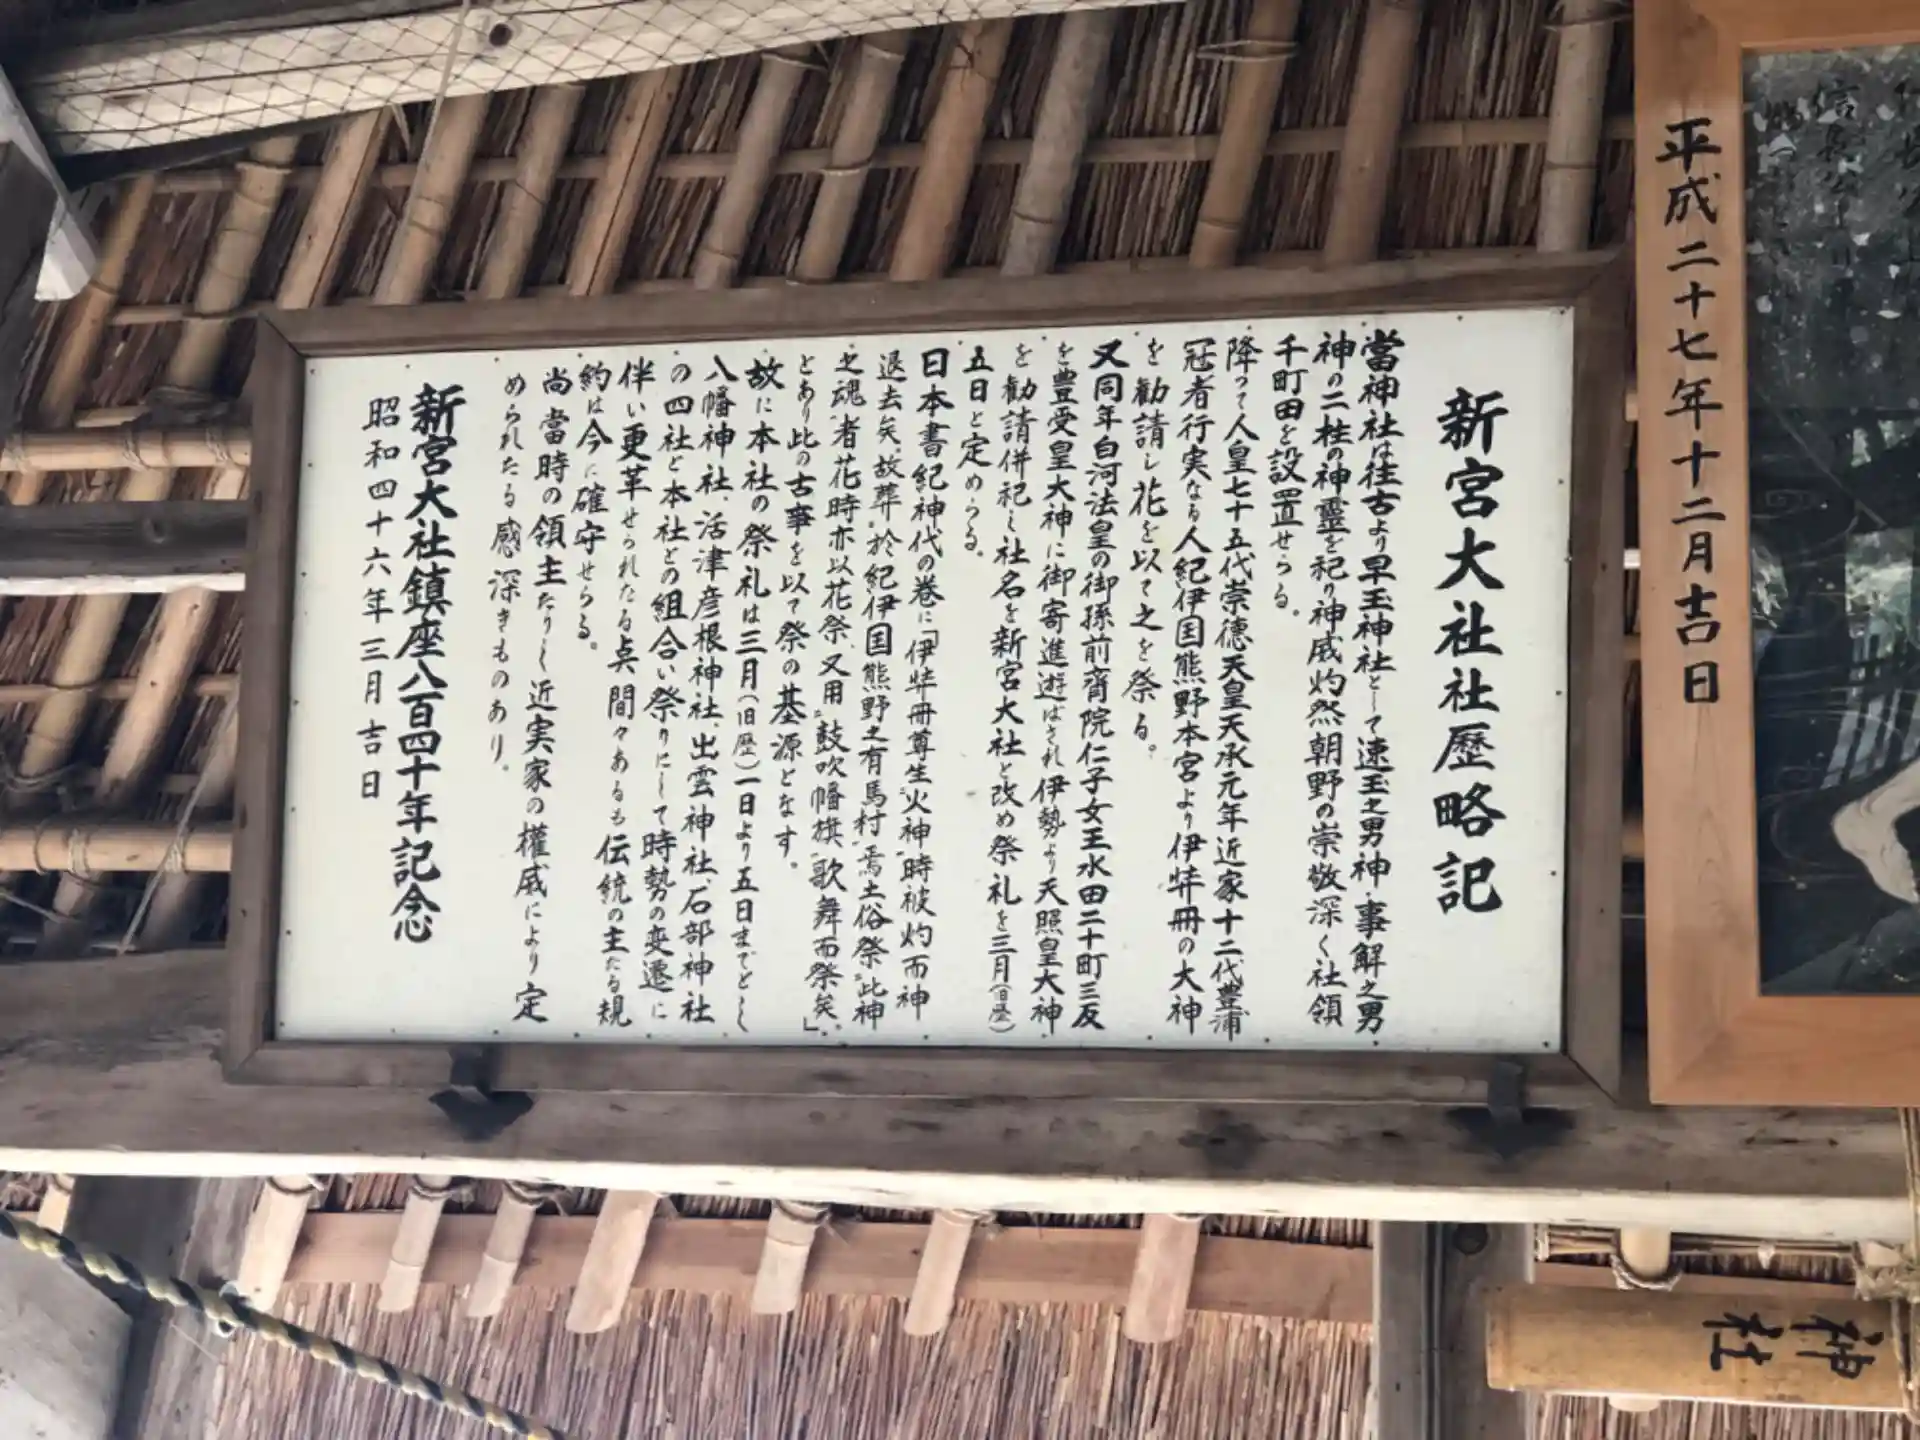 平成二十七年十二月吉日
新宮大社社歴略記
當神社は往古より早玉神社として速玉之男神・事解之男
神の二柱の神靈を祀り神威灼然朝野の崇敬深く社領
千町田を設置せらる。
降つて人皇七十五代崇徳天皇天承元年近家十二代豊浦
冠者行実なる人紀伊国熊野本宮より伊弉冊の大神
を勧請し花を以て之を祭る。
又同年白河法皇の御孫前齊院仁子女王水田二十町三反
を豊受皇大神に御寄進遊ばされ伊勢より天照皇大神
を勧請併祀し社名を新宮大社と改め祭礼を三月(旧歴)
五日と定めらる。
日本書紀神代の巻に「伊弉冊尊生火神時被灼而神
退去矣、故葬於紀伊国熊野之有馬村焉土俗祭此神
之魂者花時亦以花祭、又用鼓吹幡旗、歌舞而祭矣」
とあり此の古事を以て祭の基源となす。
故に本社の祭礼は三月(旧歴)一日より五日までとし
八幡神社、活津彦根神社、出雲神社、石部神社
の四社と本社との組合い祭りにして時勢の変遷に
伴い更革せられたる点間々あるも伝統の主たる規
約は今に確守せらる。
尚當時の領主たりし近実家の權威により定
められたる感深きものあり。
新宮大社鎮座八百四十年記念
昭和四十六年三月吉日
神
社